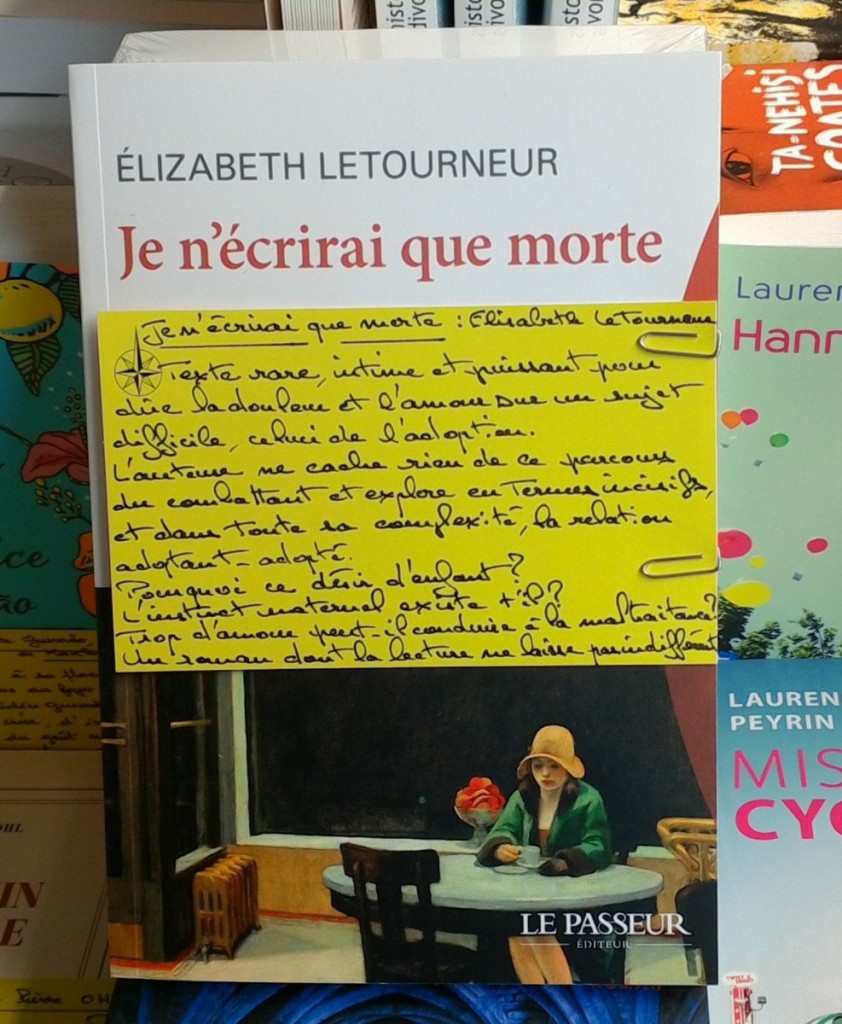 ÉLIZABETH LETOURNEUR
Je n'écrirai que morte
Je n'écrirai que morte : Elisabeth Letourneur
Texte rare, intime et puissant pour
dire la douleur et l'amour sur un sujet
difficile, celui de l'adoption.
L'auteure ne cache rien de ce parcours
du combattant et explore en Termes incisifs,
et dans toute sa complexité, la relation
adoptant-adopté.
Pourquoi ce désir d'enfant ?
L'instinct maternel existe t'il ?
Trop d'amour peut-il conduire à la maltraitance ?
Un roman dont la lecture ne laisse pas indifférent
LE PASSEUR
ÉDITEUR
TA-NEHISI
COATES
Lauren
Hann
LAUREN
PEYRIN
MIS
CYC
ice
ão
OHL
IN
E
Pierre OH